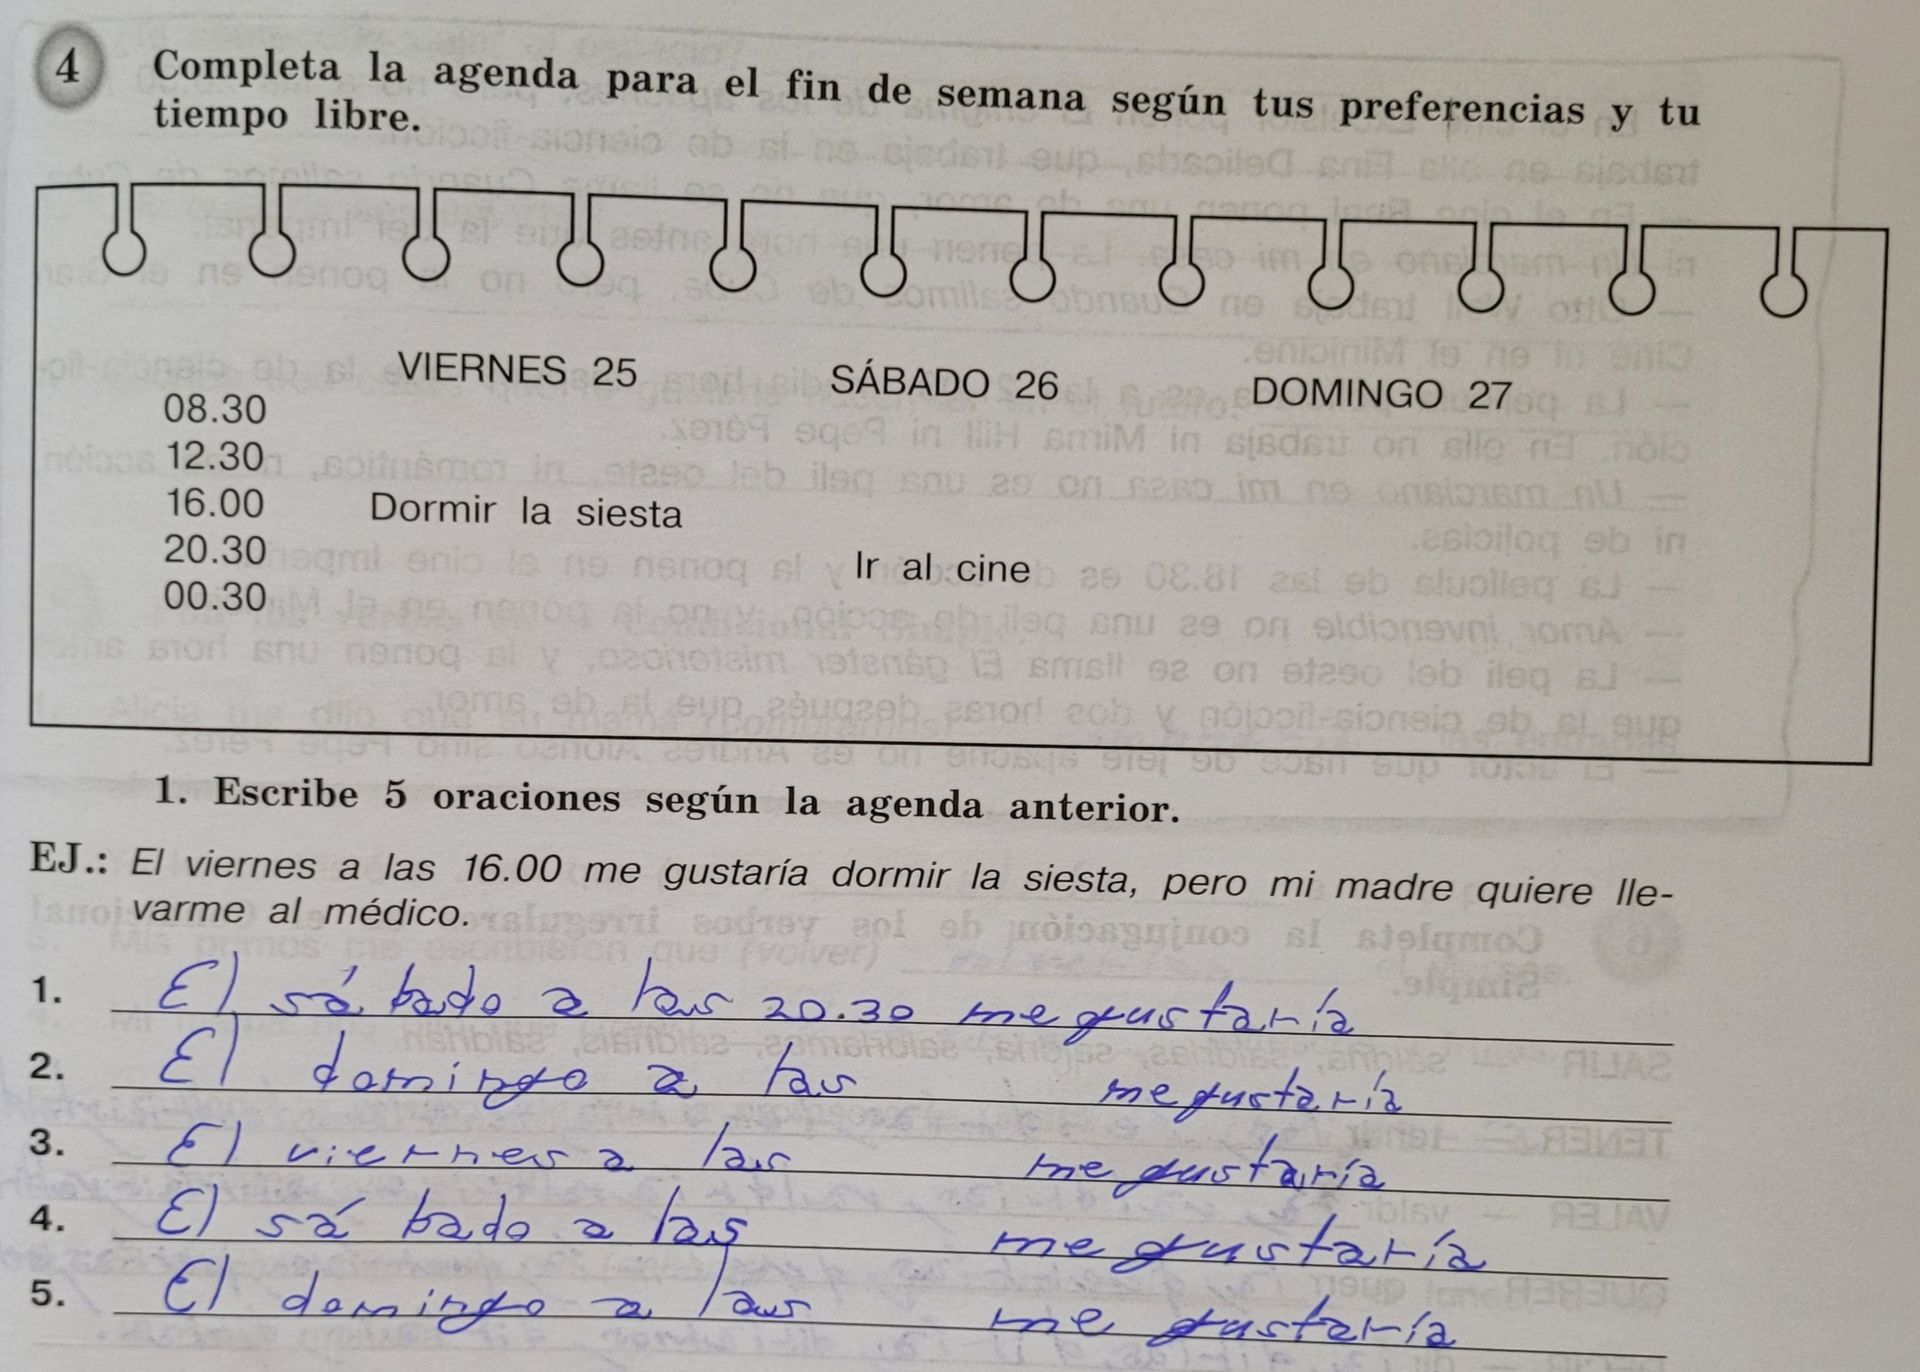 4 Completa la agenda para el fin de semana según tus preferencias y tu
tiempo libre.
VIERNES 25 SÁBADO 26 DOMINGO 27
08.30
12.30
16.00 Dormir la siesta
20.30 Ir al cine
00.30
1. Escribe 5 oraciones según la agenda anterior.
EJ.: El viernes a las 16.00 me gustaría dormir la siesta, pero mi madre quiere lle-
varme al médico.
1. El sábado a las 20.30 me gustaría
2. El domingo a las me gustaría
3. El viernes a las me gustaría
4. El sábado a las me gustaría
5. El domingo a las me gustaría